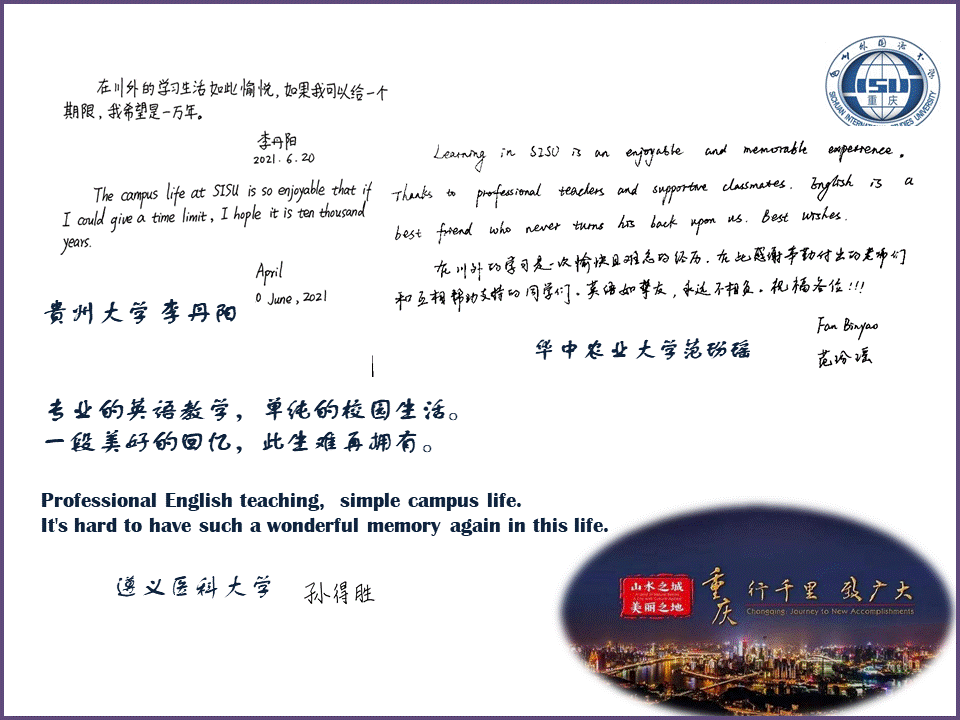 在川外的学习生活如此愉悦，如果我可以给一个
期限，我希望是一万年。
李丹阳
2021.6.20
The campus life at SISU is so enjoyable that if
I could give a time limit, I hople it is ten thousand
years.
April
0 June, 2021
贵州大学 李丹阳
四川外国语大学
SISU
重庆
SICHUAN INTERNATIONAL STUDIES UNIVERSITY
Learning in SISU is an enjoyable and memorable experience.
Thanks to professional teachers and supportive classmates. English is a
best friend who never turns his back upon us. Best wishes.
在川外的学习是一次愉快且难忘的经历。在此感谢辛勤付出的老师们
和互相帮助支持的同学们。英语如挚友，永远不相负。祝福各位!!!
Fan Binyao
范玢瑶
华中农业大学范玢瑶
专业的英语教学，单纯的校园生活。
一段美好的回忆，此生难再拥有。
Professional English teaching, simple campus life.
It's hard to have such a wonderful memory again in this life.
遵义医科大学 孙得胜
山水之城
美丽之地
重庆 行千里 致广大
Chongqing: Journey to New Accomplishments